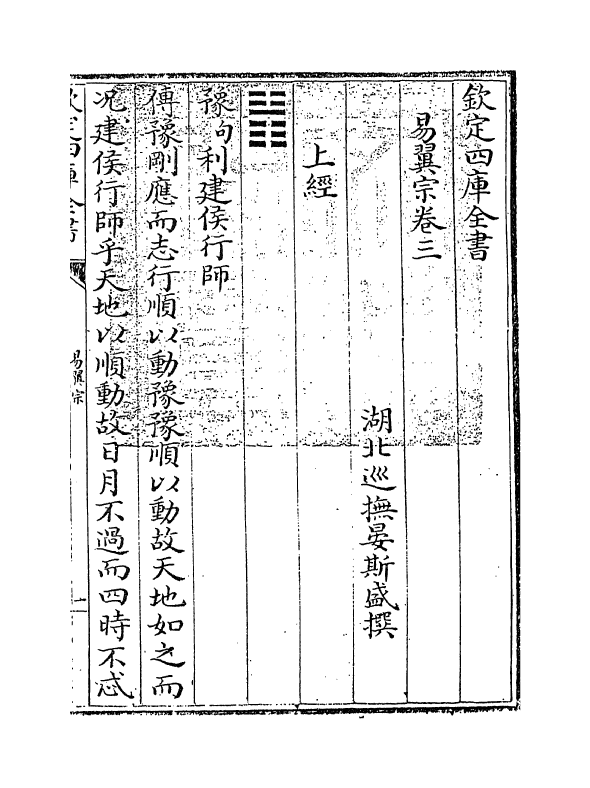 欽定四庫全書
易翼宗卷三
湖北巡撫晏斯盛撰
上經
䷏
豫句利建侯行師
傳豫剛應而志行順以動豫豫順以動故天地如之而
况建侯行師乎天地以順動故日月不過而四時不忒
欽定四庫全書
易翼宗
一